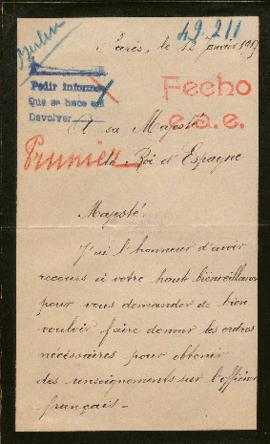 49211
Berlin
Paris, le 12 janvier
Pedir informes
Que se hace en
Devolver
Fecho
e.a.e.
A sa Majesté
le Roi d'Espagne
Prunier
Majesté
J'ai l'honneur d'avoir
recours à votre haut bienveillance
pour vous demander de bien
vouloir faire donner les ordres
nécessaires pour obtenir
des renseignements sur l'officier
français -